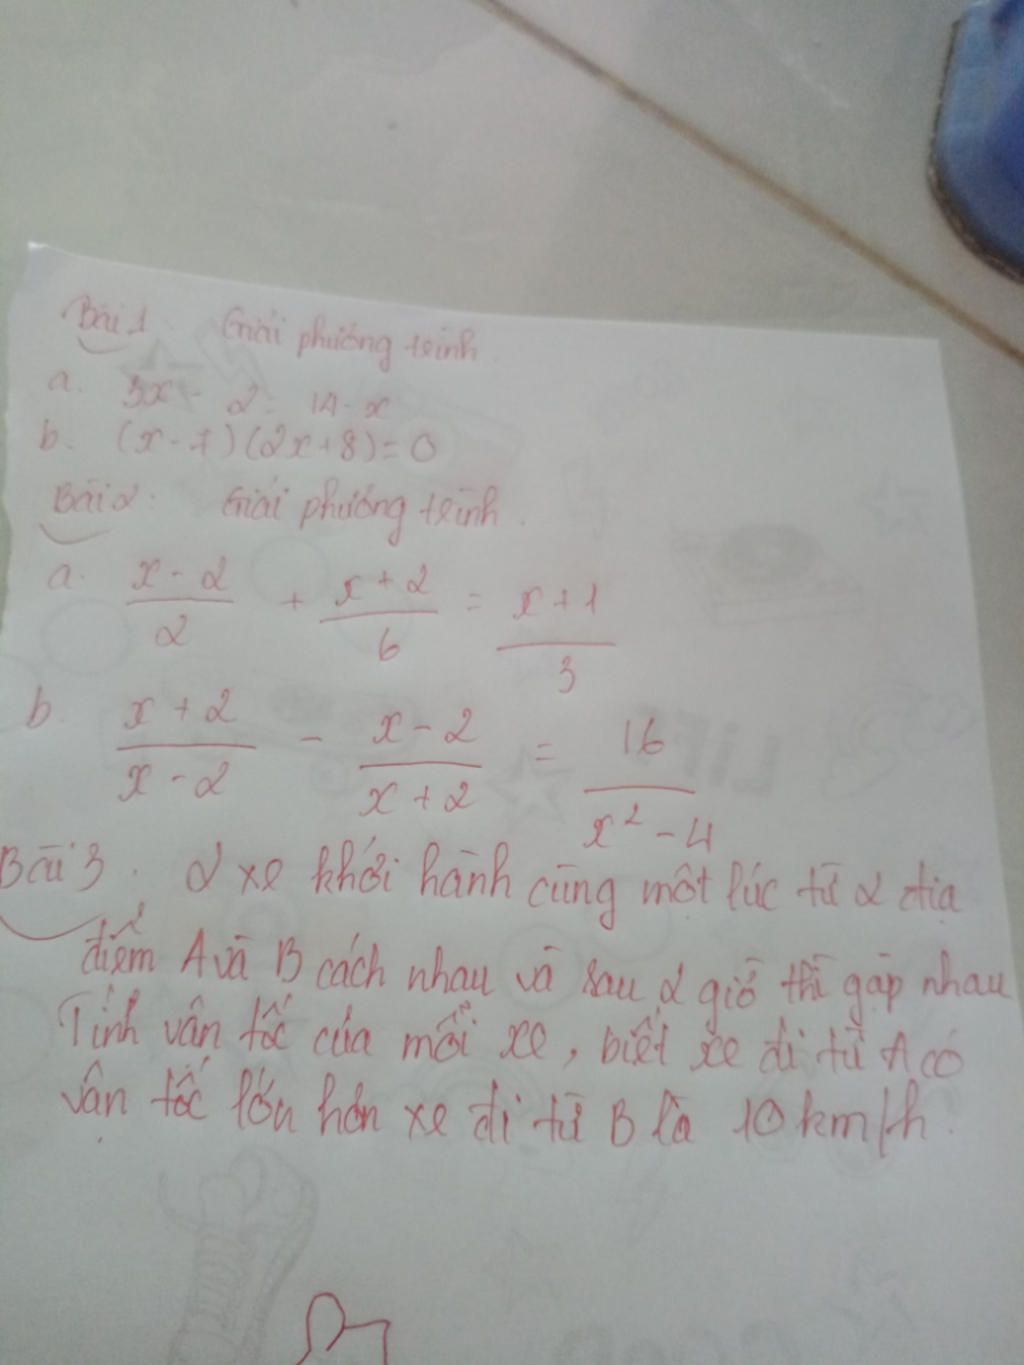 Bài 1. Giải phương trình
a. 3x - 2 = 14 - x
b. (x - 7)(2x+8)=0
Bài 2: Giải phương trình.
a. \frac{x - 2}{2} + \frac{x + 2}{6} = \frac{x + 1}{3}
b. \frac{x + 2}{x - 2} - \frac{x - 2}{x + 2} = \frac{16}{x^2 - 4}
Bài 3. 2 xe khởi hành cùng một lúc từ 2 địa
điểm A và B cách nhau và sau 2 giờ thì gặp nhau
Tính vận tốc của mỗi xe, biết xe đi từ A có
vận tốc lớn hơn xe đi từ B là 10 km/h.
LiFE